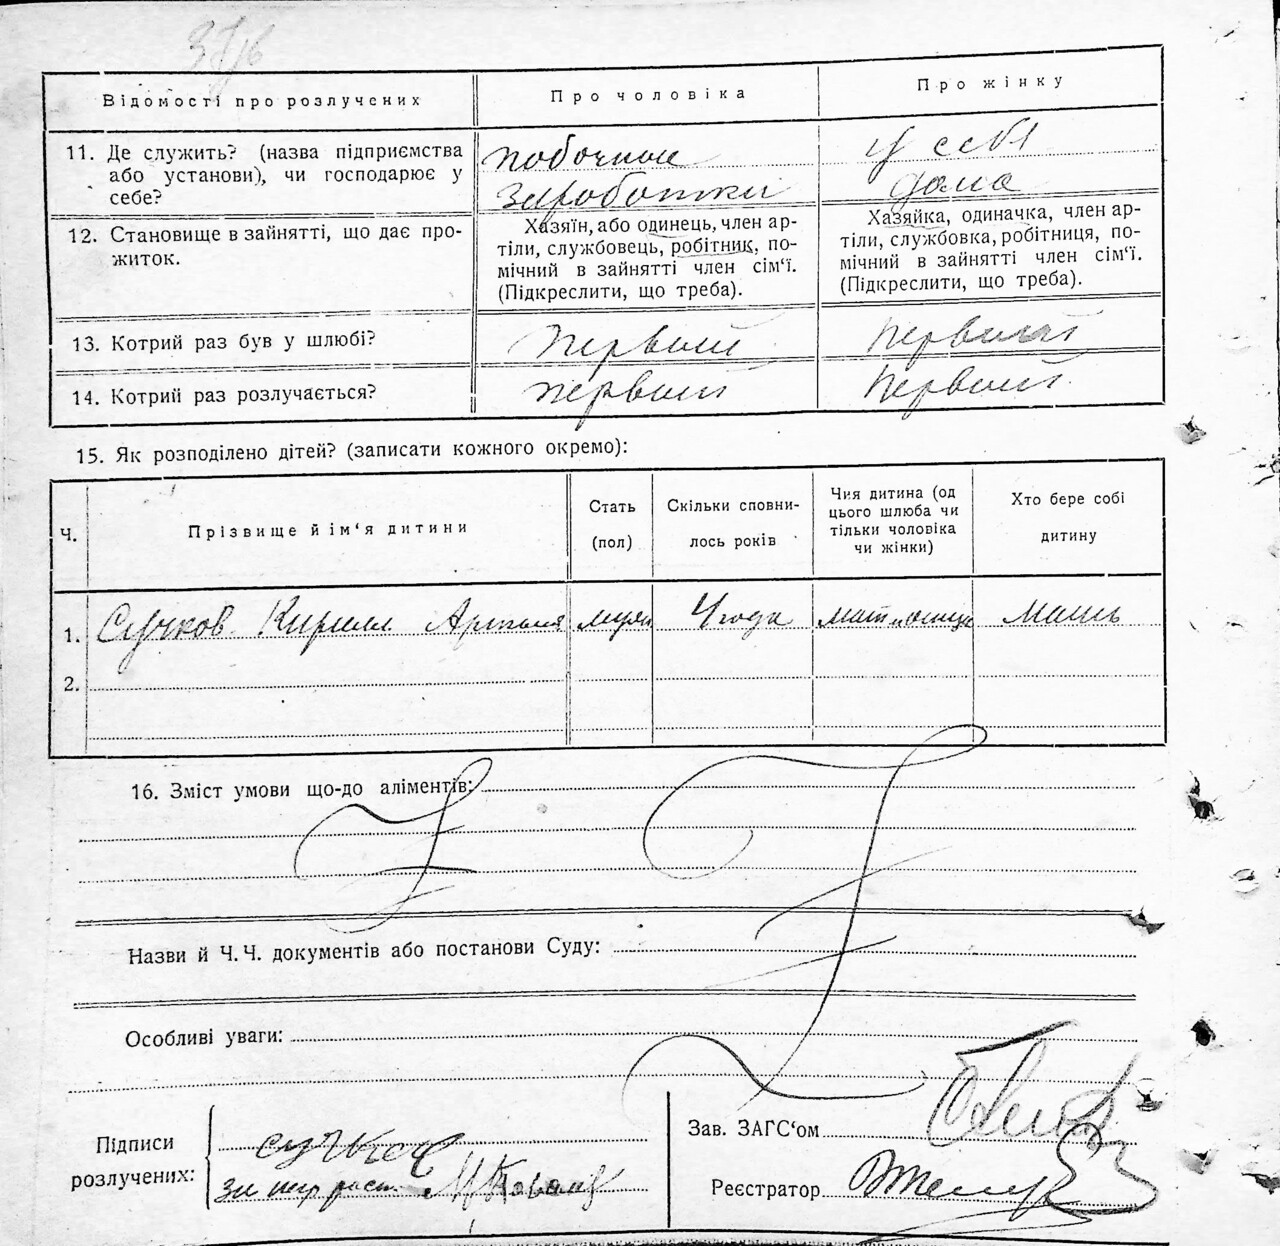 Відомості про розлучених
Про чоловіка
Про жінку
11. Де служить? (назва підприємства
або установи), чи господарює у
себе?
побочные
заработки
у себя
дома
12. Становище в зайнятті, що дає про-
житок.
Хазяїн, або одинець, член ар-
тіли, службовець, робітник, по-
мічний в зайнятті член сім‘ї.
(Підкреслити, що треба).
Хазяйка, одиначка, член ар-
тіли, службовка, робітниця, по-
мічний в зайнятті член сім‘ї.
(Підкреслити, що треба).
13. Котрий раз був у шлюбі?
первый
первый
14. Котрий раз розлучається?
первый
первый
15. Як розподілено дітей? (записати кожного окремо):
Ч.
Прізвище й ім‘я дитини
Стать
(пол)
Скільки сповни-
лось років
Чия дитина (од
цього шлюба чи
тільки чоловіка
чи жінки)
Хто бере собі
дитину
1. Сучков Кирилл 4 года мать
2.
16. Зміст умови що-до аліментів:
Назви й Ч.Ч. документів або постанови Суду:
Особливі уваги:
Підписи
розлучених:
Зав. ЗАГС‘ом
Реєстратор